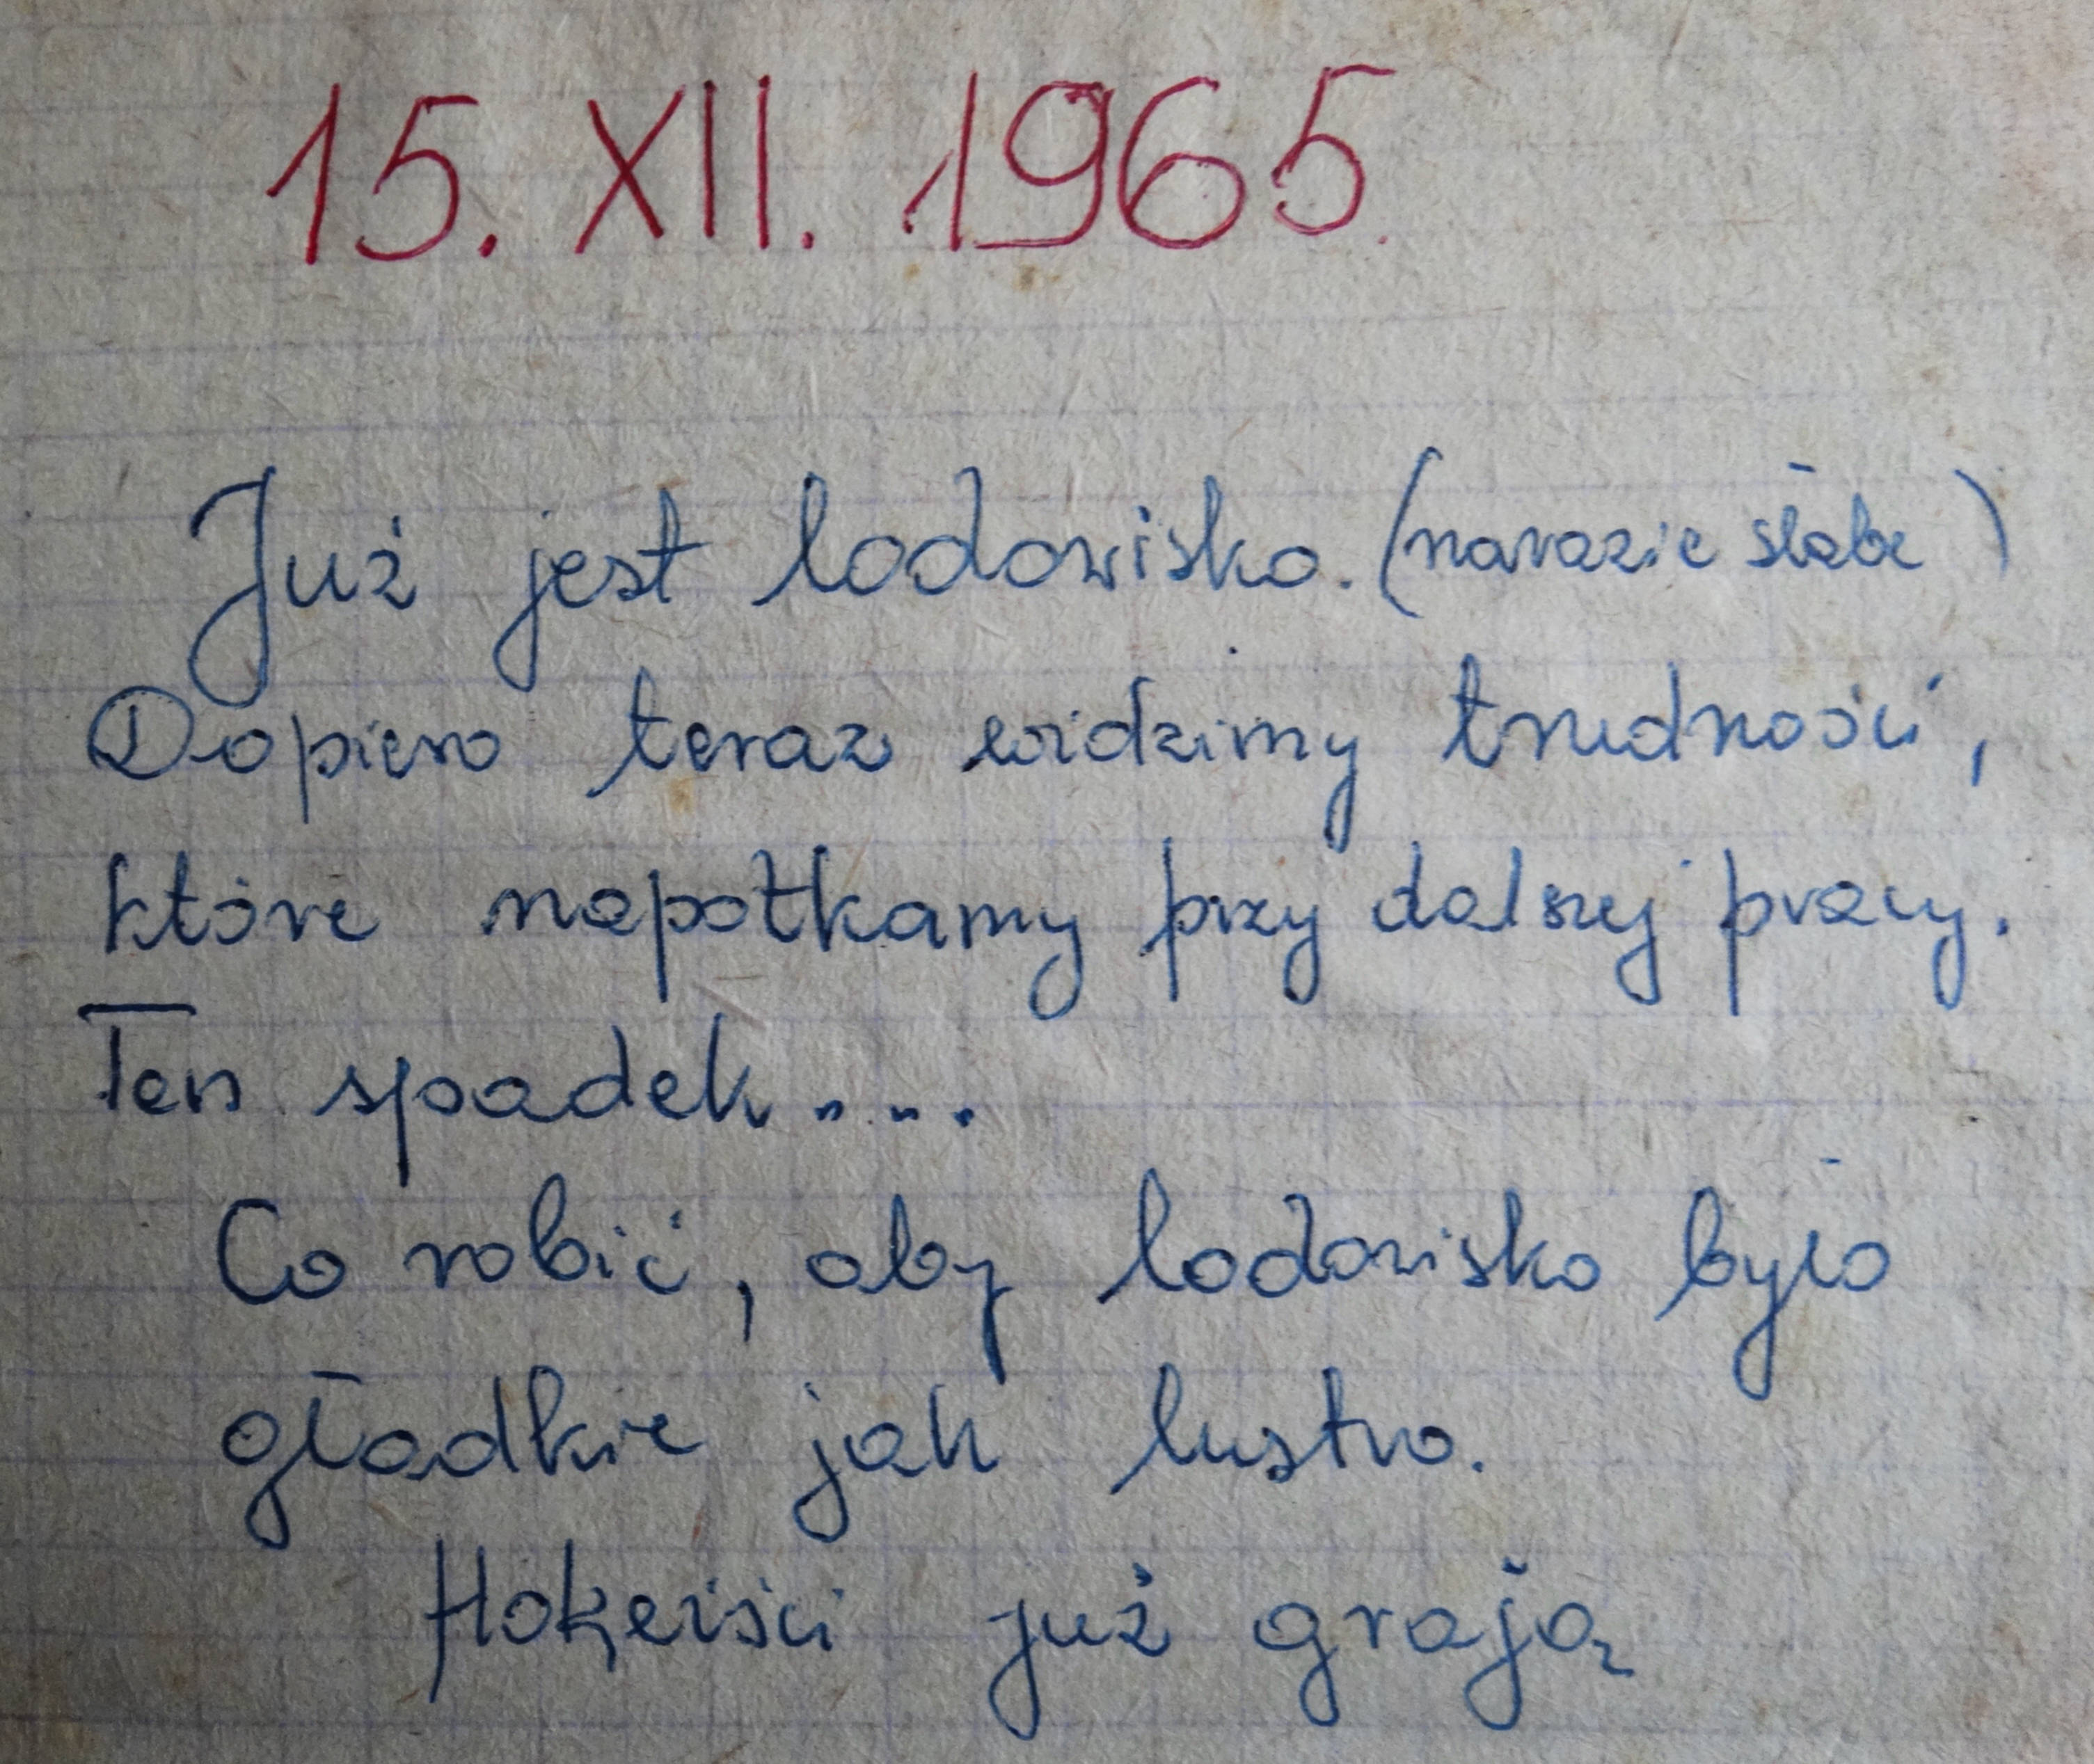 15. XII. 1965.
Już jest lodowisko. (narazie słabe)
Dopiero teraz widzimy trudności,
które napotkamy przy dalszej pracy.
Ten spadek....
Co robić, aby lodowisko było
gładkie jak lustro.
Hokeiści już grają